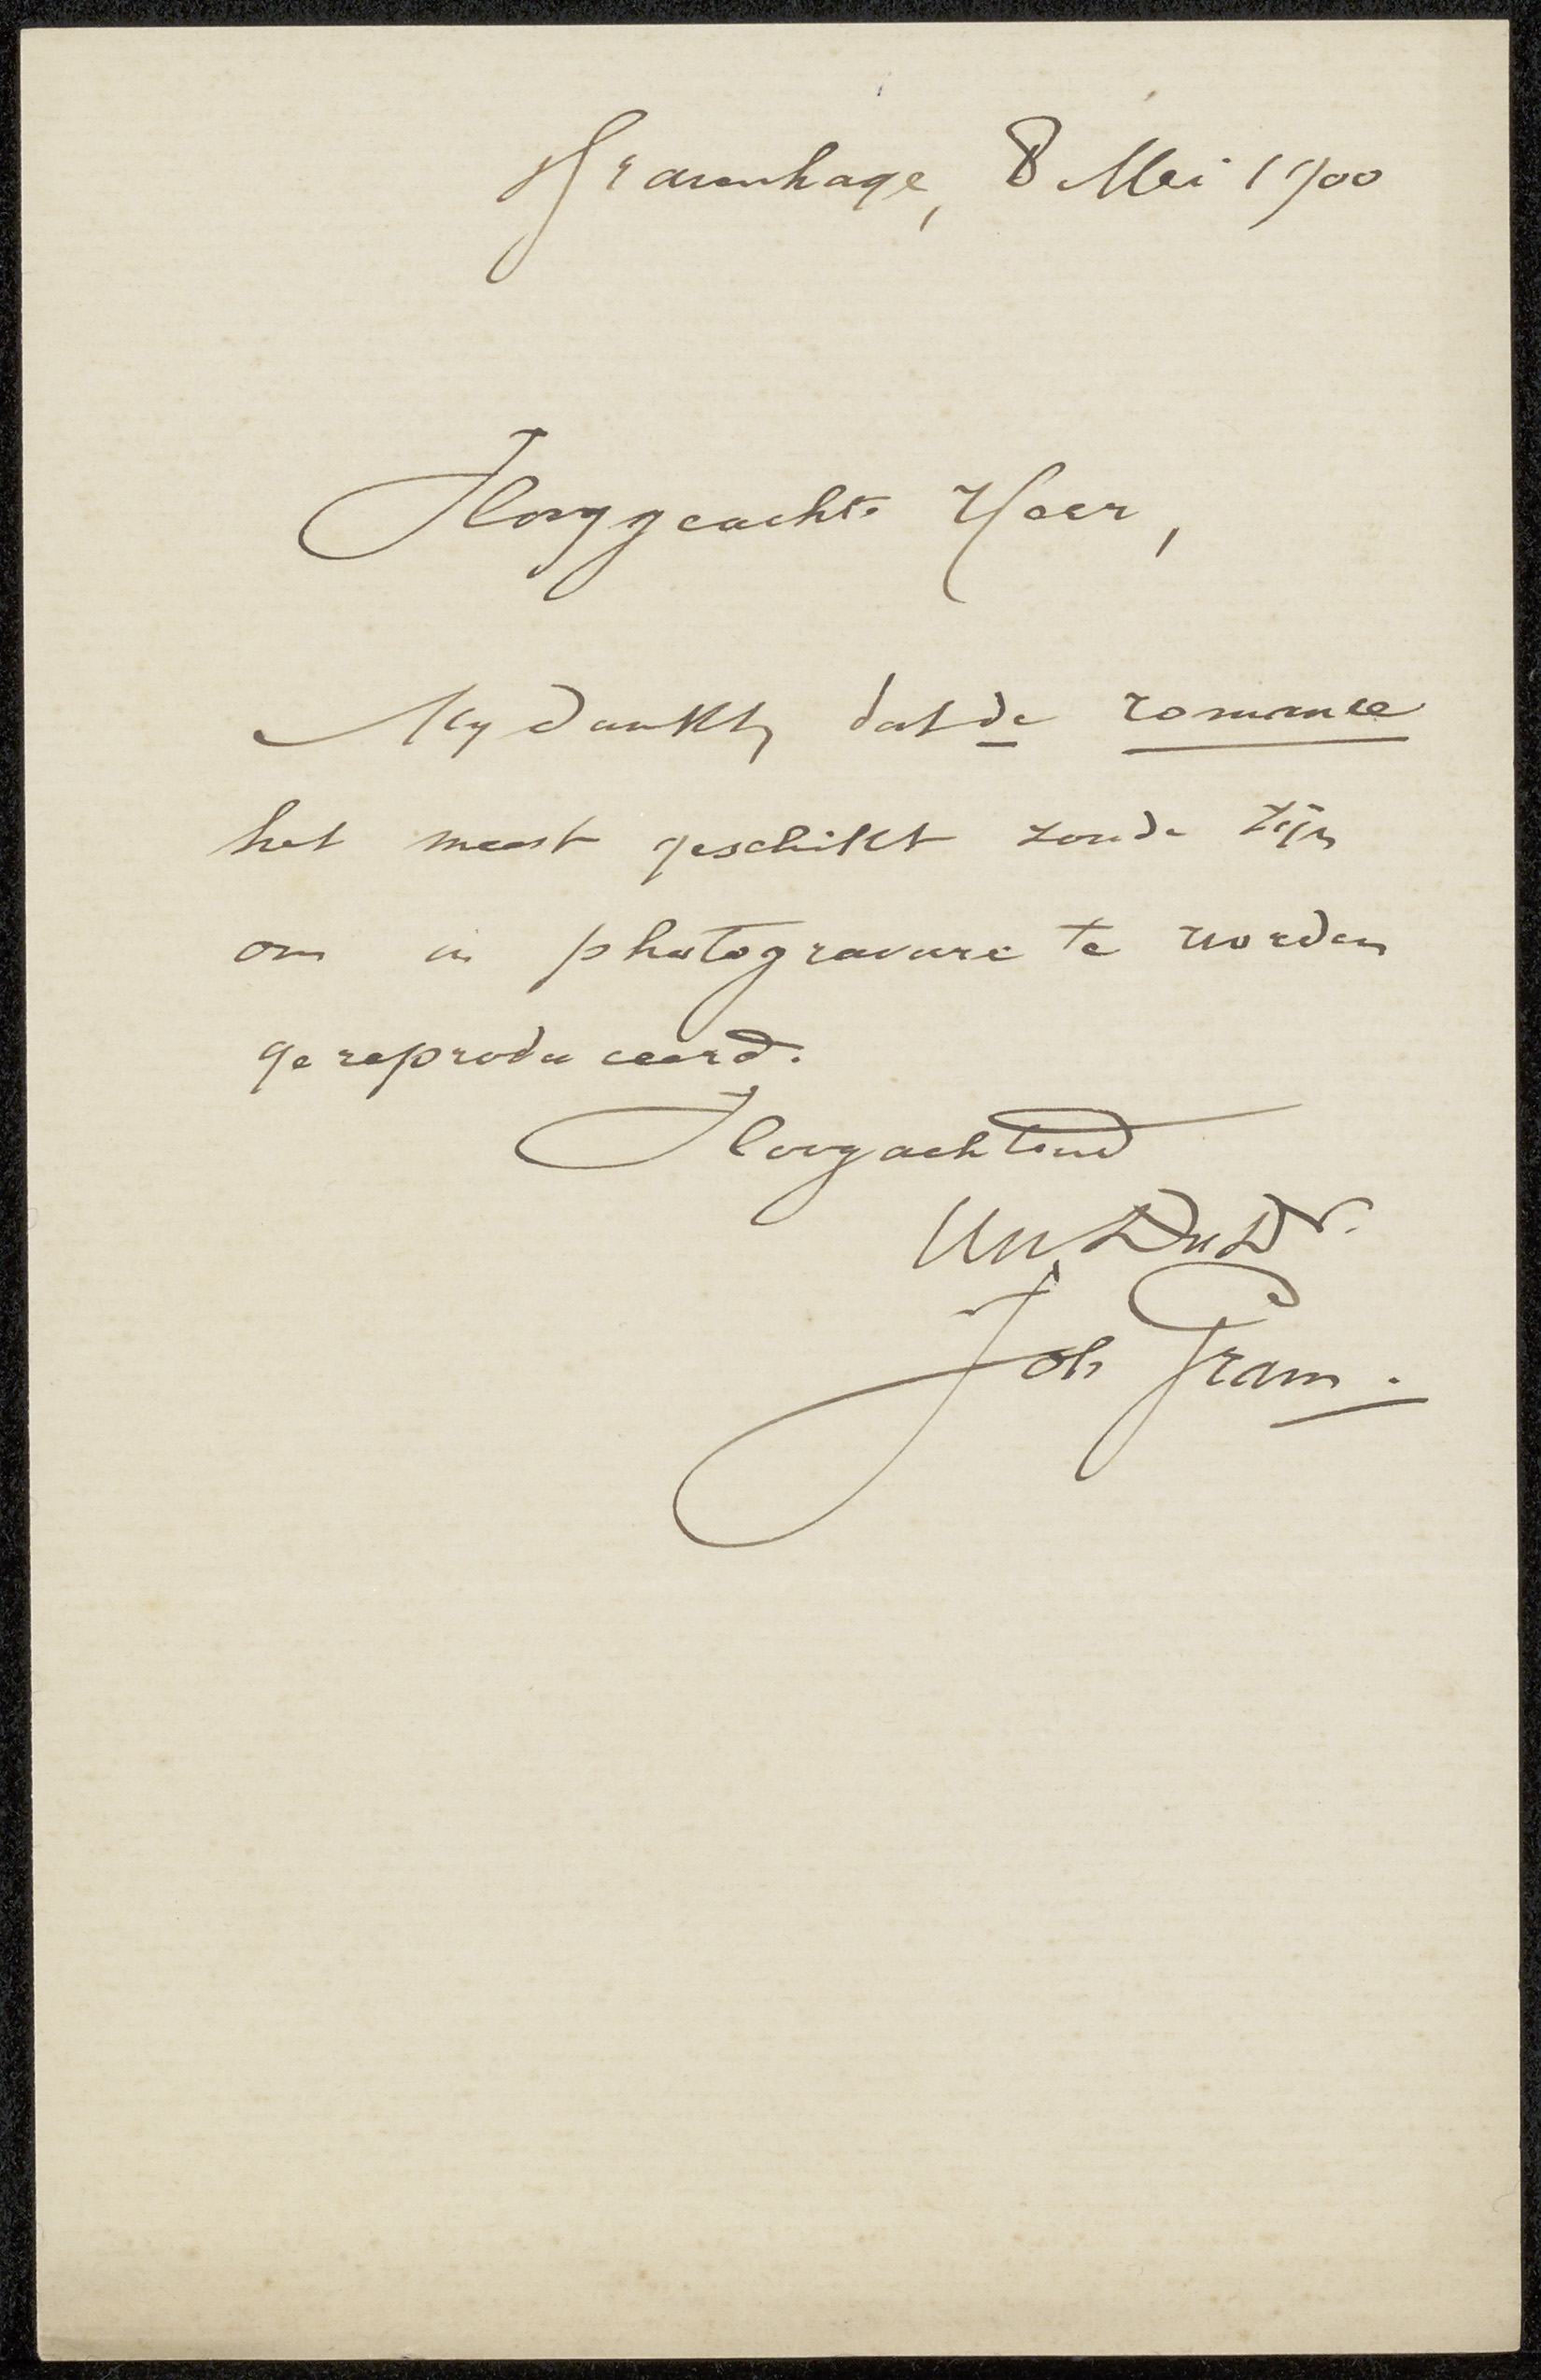 's Gravenhage, 8 Mei 1900
Hooggeachte Heer,
My dunkt, dat de romance
het meest geschikt zoude zijn
om in photogravure te worden
gereproduceerd.
Hoogachtend
Uw Dw Dr.
Joh Gram.